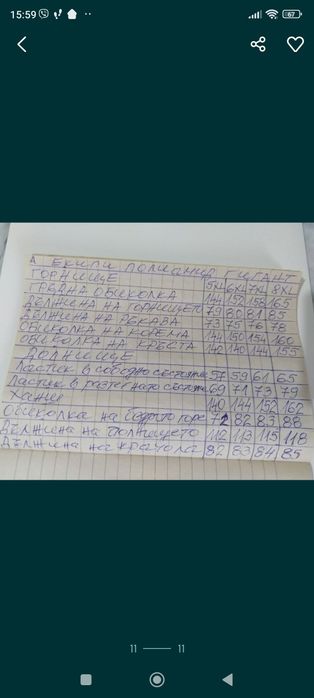 15:59
67
А ЕКИПИ ПОЛИАМИД ГИГАНТ
ГОРНИЩЕ 5XL 6XL 7XL 8XL
ГРЪДНА ОБИКОЛКА 144 152 158 165
ДЪЛЖИНА НА ГОРНИЩЕТО 79 80 81 85
ДЪЛЖИНА НА РЪКАВА 73 75 76 78
ОБИКОЛКА НА КОРЕМА 144 150 154 160
ОБИКОЛКА НА КРЪСТА 142 140 144 155
ДОЛНИЩЕ
Ластик в свободно състояние 57 59 61 65
Ластик в разтегнато състояние 69 71 73 79
Ханш 140 144 152 162
Обиколка на бедрото горе 82 83 88
Дължина на долнището 112 113 115 118
Дължина на крачола 82 83 84 85
11 11